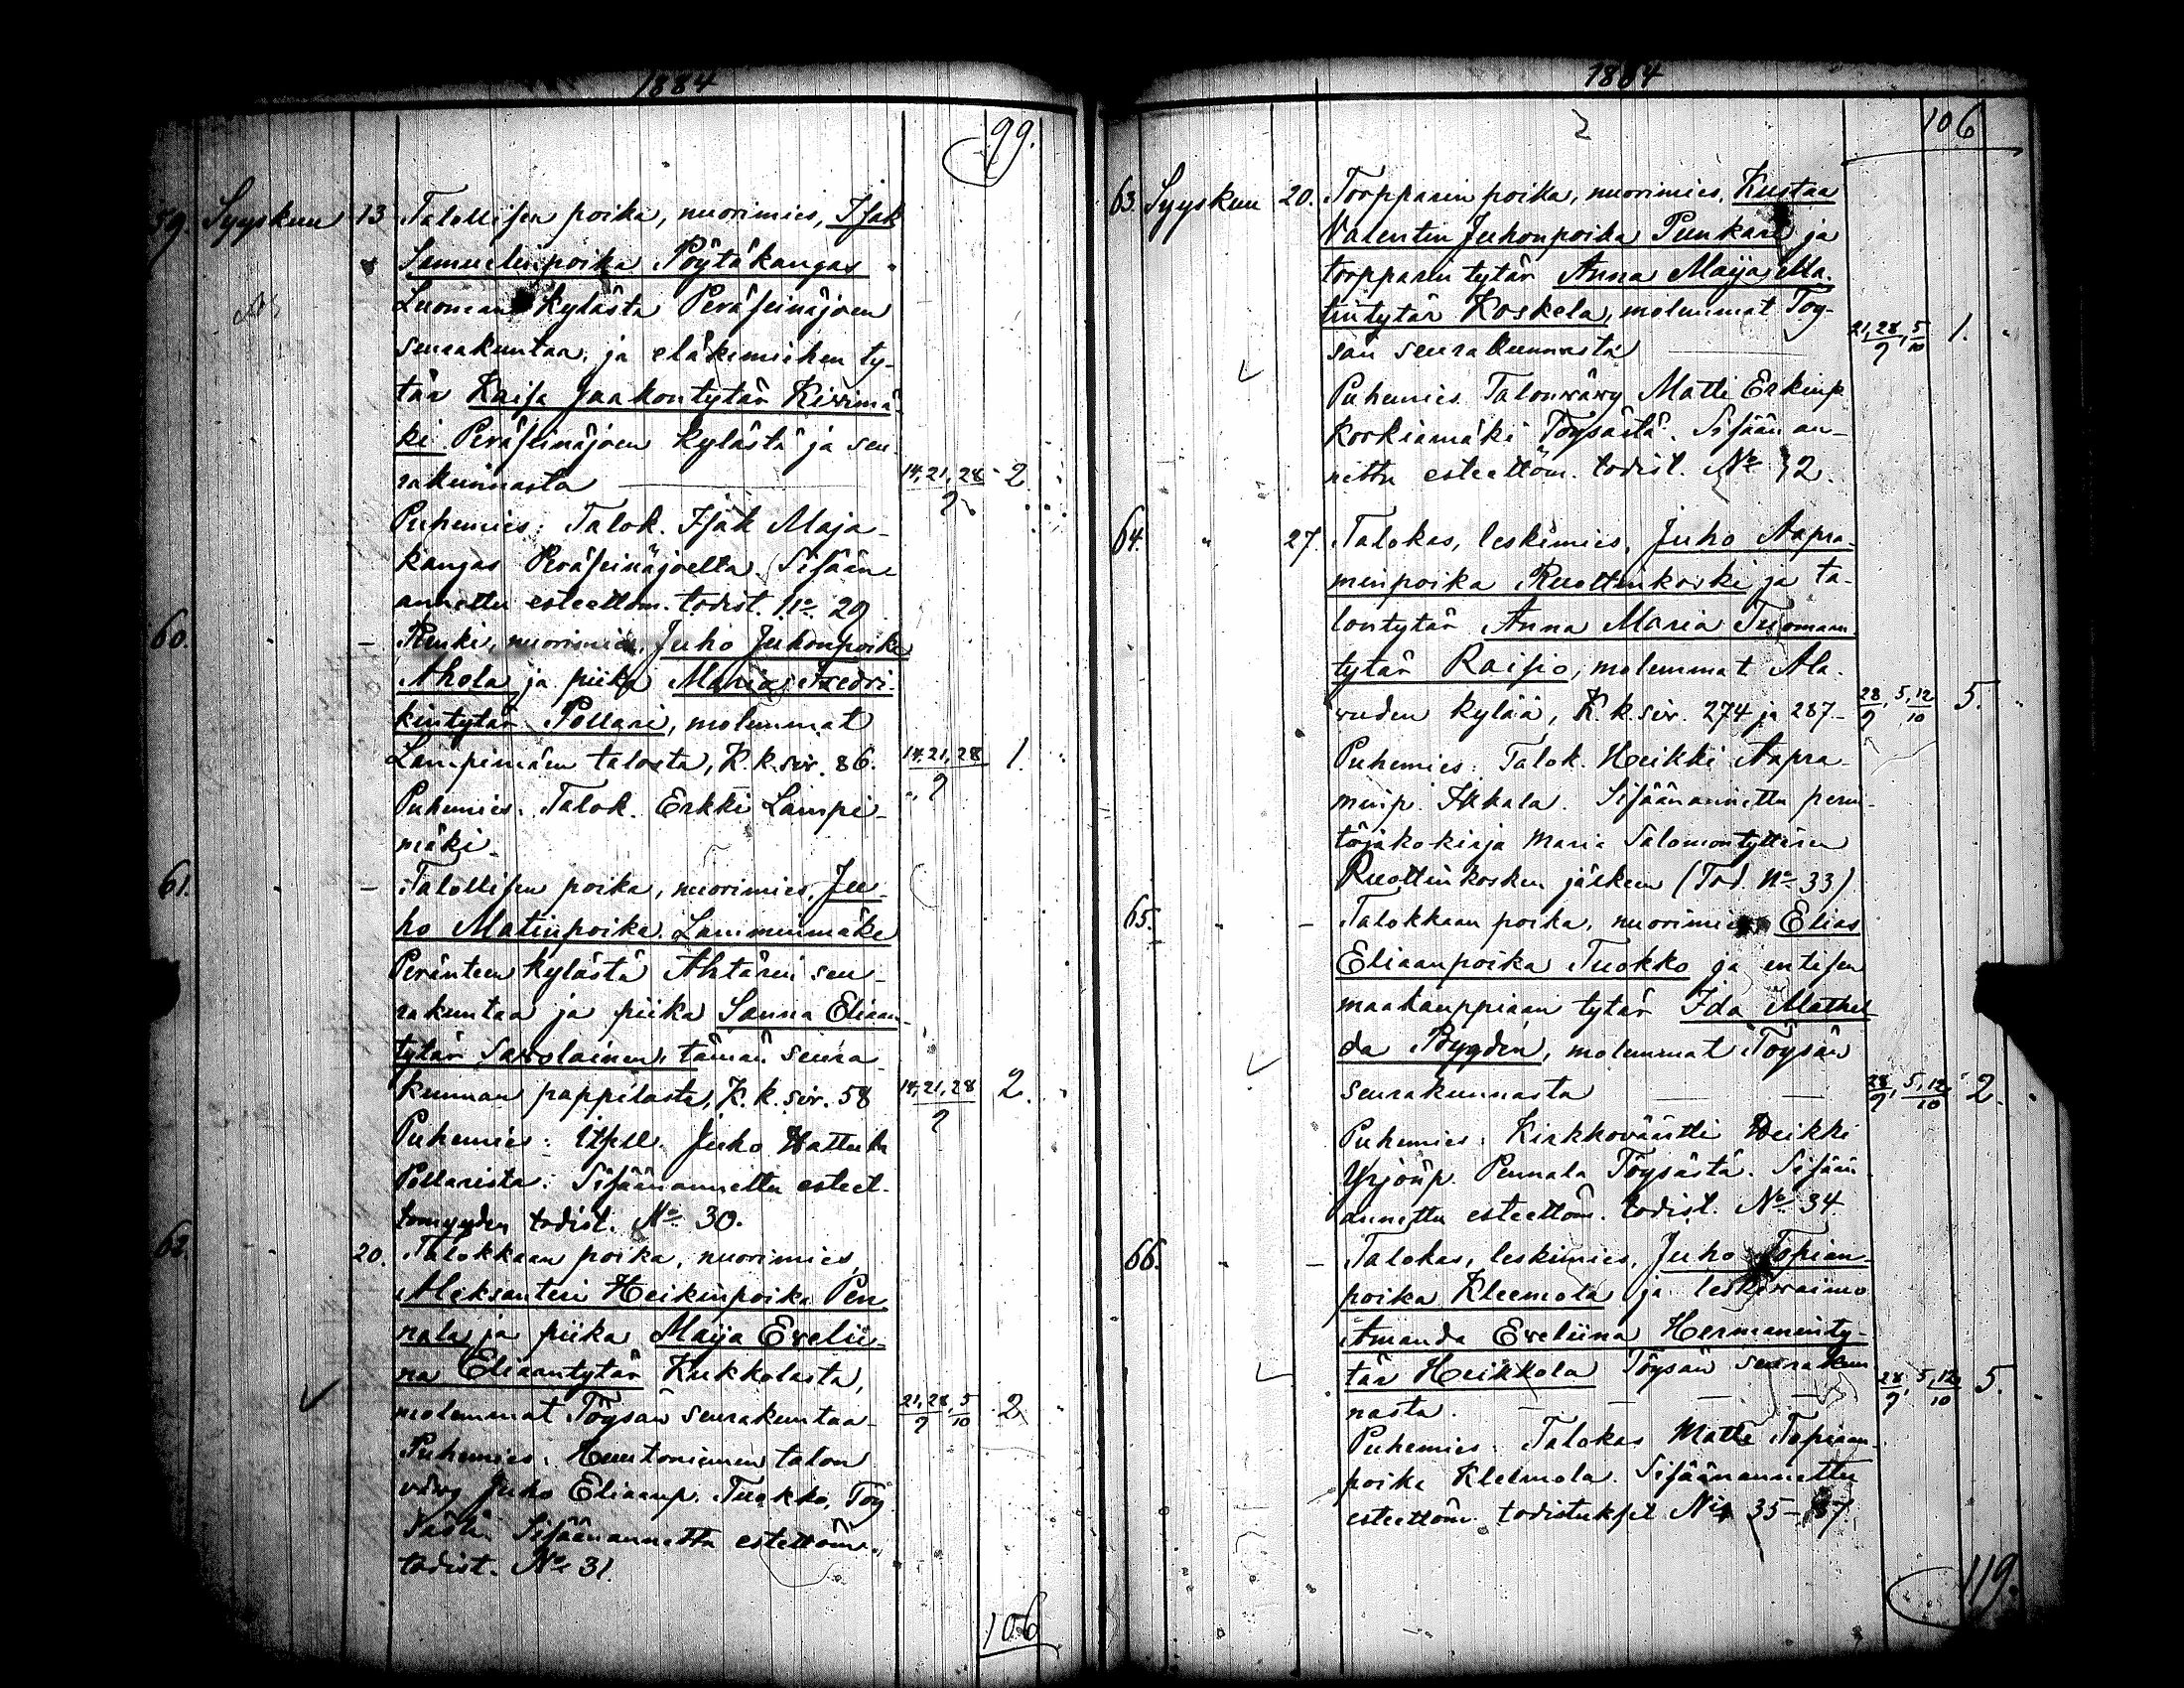 1884
99.
59. Syyskuu 13 Talollisen poika, nuorimies, Isak
Samuelinpoika Pöytäkangas
Luoman kylästä Peräseinäjoen
seurakuntaa, ja eläkemiehen ty-
tär Kaisa Jaakontytär Kivimä-
ki Peräseinäjoen kylästä ja seu-
rakunnasta 14,21,28/9 2
Puhemies: Talok. Isak Maja-
kangas Peräseinäjoelta. Sisään-
annettu esteettöm. todist. No 29
60. " - Renki, nuorimies, Juho Juhonpoika
Ahola ja piika Maria Fredri-
kintytär Pollari, molemmat
Lampimäen talosta, K.k. siv. 86. 14,21,28/9 1.
Puhemies: Talok. Erkki Lampi-
mäki.
61. " - Talollisen poika, nuorimies, Ju-
ho Matinpoika Lamminmäki
Peränteen kylästä Ähtärin seu-
rakuntaa ja piika Sanna Eliaan-
tytär Savolainen, tämän seura-
kunnan pappilasta, K.k. siv. 58 14,21,28/9 2.
Puhemies: Itsell. Juho Hattula
Pollarista. Sisäänannettu esteet-
tömyyden todist. No 30.
62. " 20. Talokkaan poika, nuorimies,
Aleksanteri Heikinpoika Pen-
nala ja piika Maija Evelii-
na Eliaantytär Kukkolasta,
molemmat Töysän seurakuntaa 21,28/9, 5/10 2
Puhemies: talon
väwy Juho Eliaanp. Tuokko, Töy-
sästä. Sisäänannettu esteettöm.
todist. No 31.
106
1884
106
63. Syyskuu 20. Torpparin poika, nuorimies, Kustaa
Valentin Juhonpoika Punkari ja
torpparin tytär Anna Maija Ma-
tintytär Koskela, molemmat Töy-
sän seurakunnasta 21,28/9, 5/10 1.
Puhemies Talonwäwy Matti Erkinp.
Korkiamäki Töysästä. Sisään an-
nettu esteettöm. todist. No 32.
64. " 27. Talokas, leskimies, Juho Aapra-
minpoika Ruottinkoski ja ta-
lontytär Anna Maria Tuomaan-
tytär Raisio, molemmat Ala-
vuden kylää, K.k. siv. 274 ja 287. 28/9, 5,12/10 5.
Puhemies: Talok. Heikki Aapra-
minp. Ikkala. Sisäänannettu perin-
töjakokirja Maria Salomontyttären
Ruottinkosken jälkeen (Tod. No 33)
65. " - Talokkaan poika, nuorimies Elias
Eliaanpoika Tuokko ja entisen
maakauppiaan tytär Ida Mathil-
da Bygdén, molemmat Töysän
seurakunnasta 28/9, 5,12/10 2.
Puhemies: Kirkkoväärtti Heikki
Yrjönp. Pennala Töysästä. Sisään-
annettu esteettöm. todist. No 34
66. " - Talokas, leskimies, Juho Topian-
poika Kleemola ja leskivaimo
Amanda Eveliina Hermaninty-
tär Heikkola Töysän seurakun-
nasta. 28/9, 5,12/10 5.
Puhemies: Talokas Matti Topiaan-
poika Kleemola. Sisäänannettu
esteettöm. todistukset No 35-37.
119.